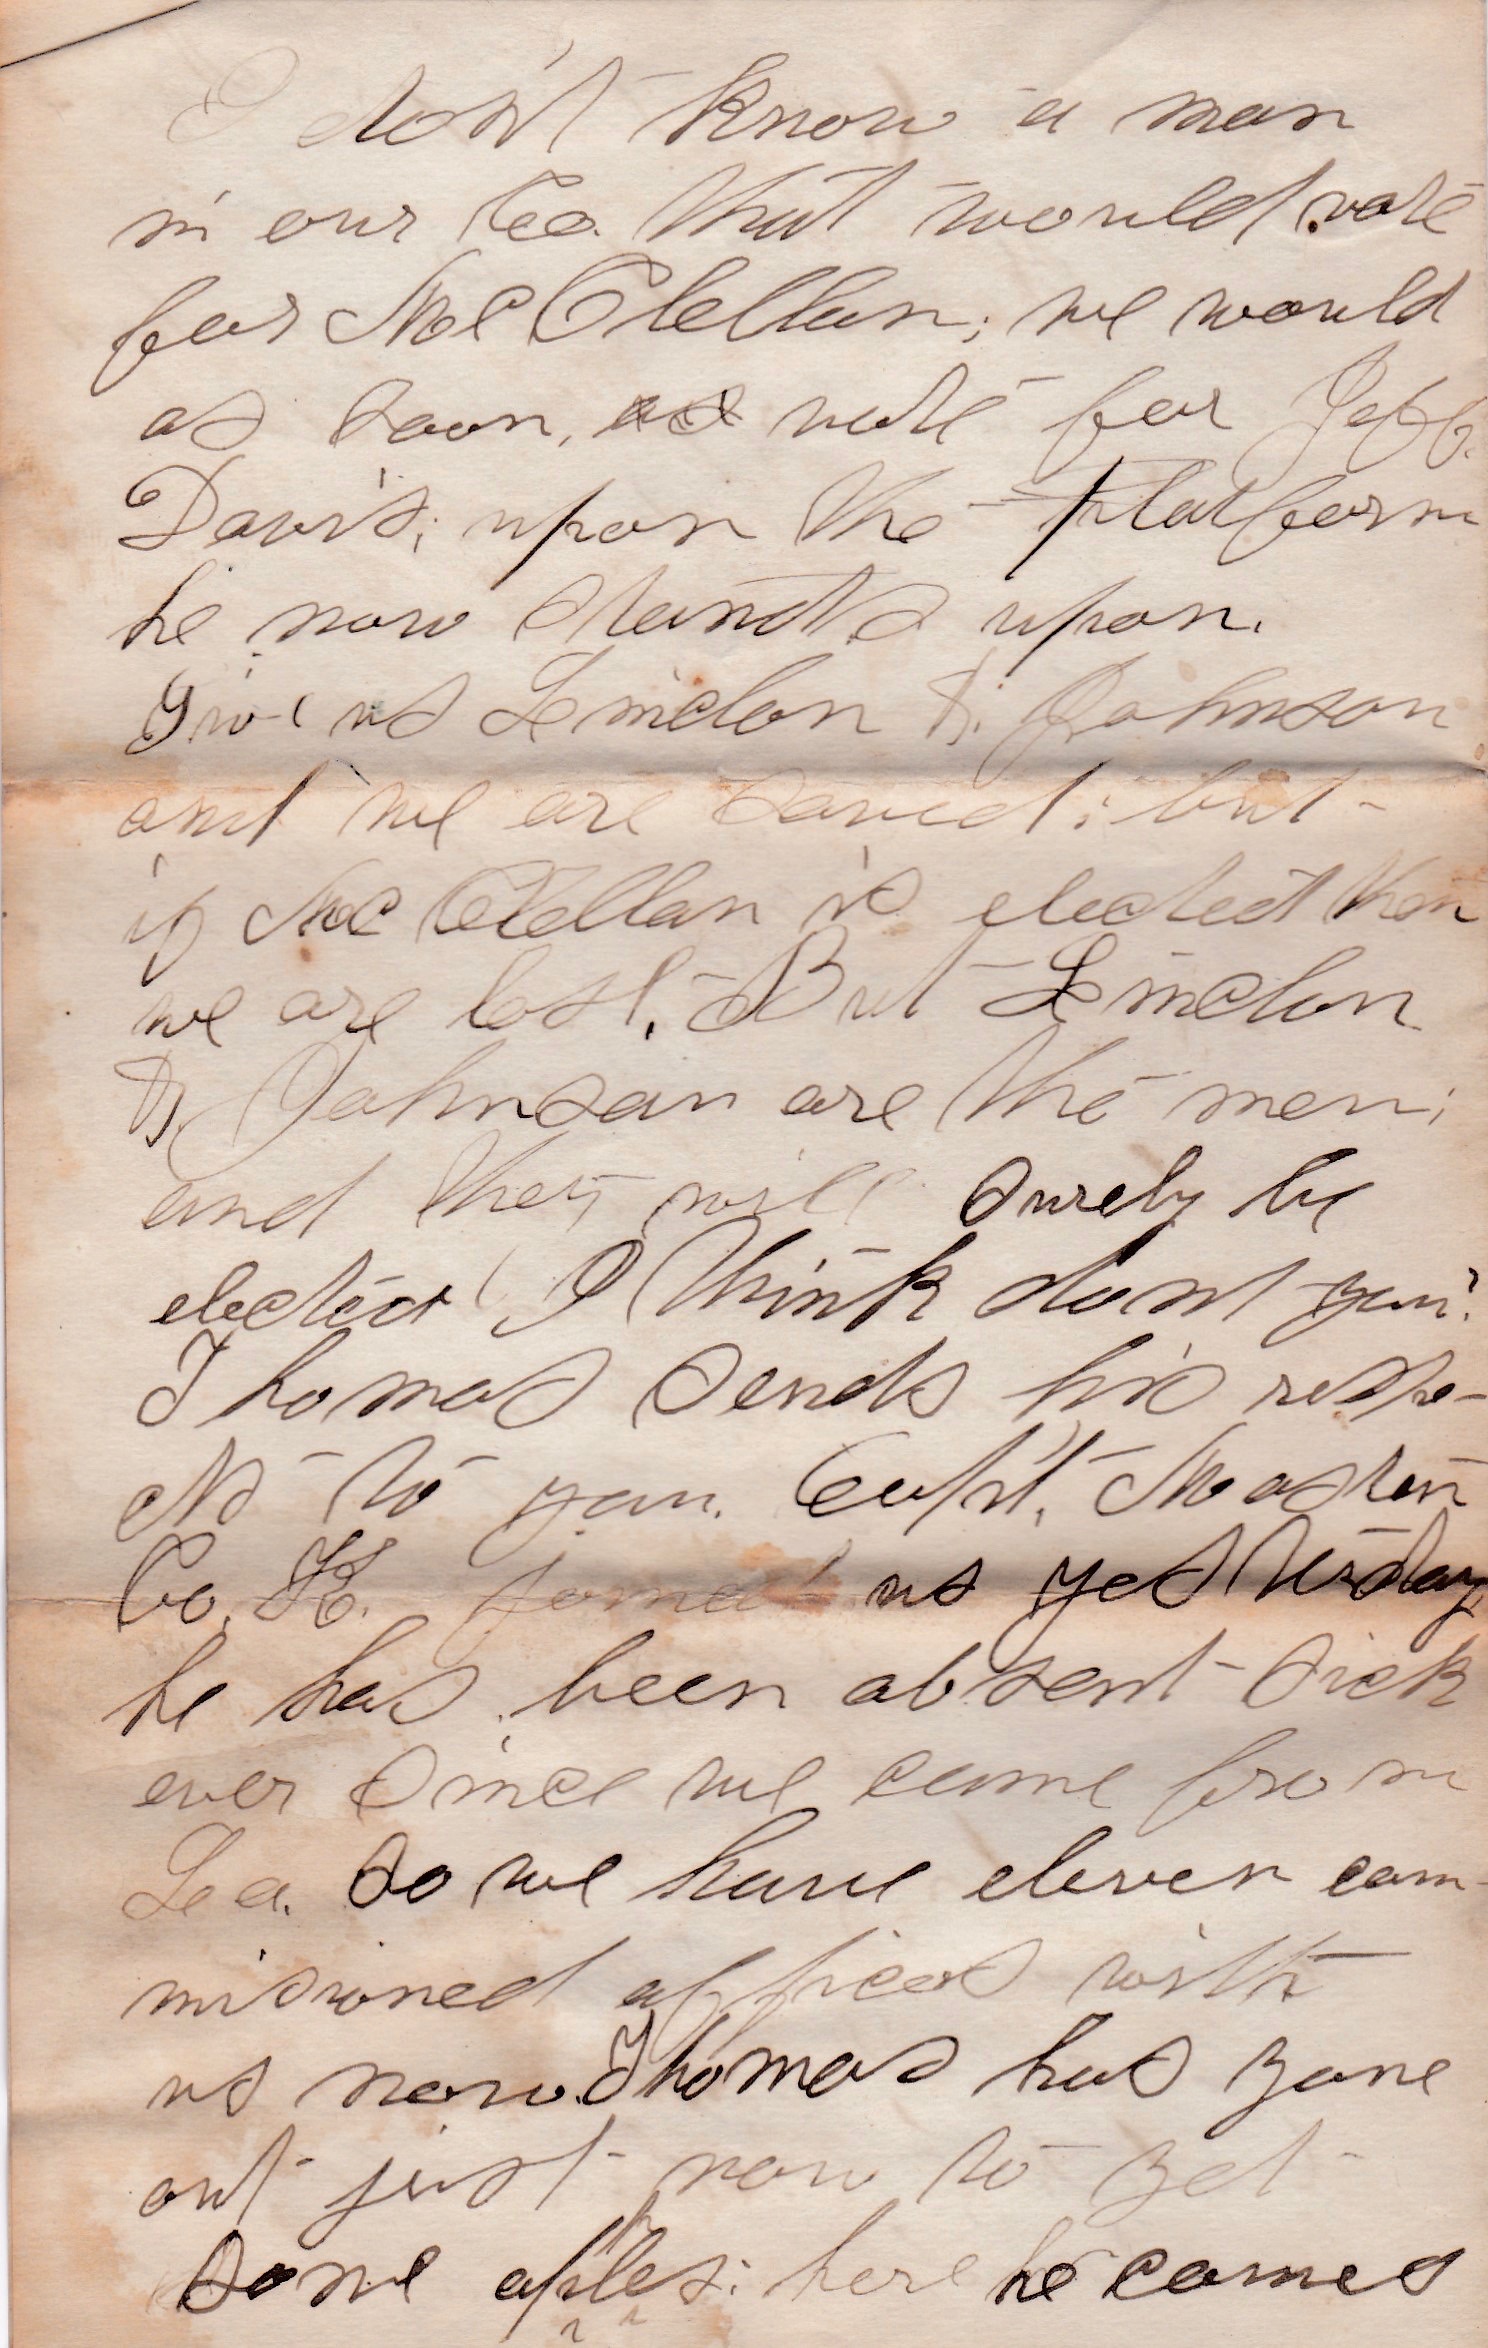 I don't know a man
in our Co. that would vote
for McClellan; we would
as soon, as vote for Jeff.
Davis; upon the Platform
he now stands upon.
Give us Linclon & Johnson
and we are saved; but
if McClellan is elected then
we are lost. But Linclon
& Johnson are the men;
and they will surely be
elected I think dont you?
Thomas sends his respe-
cts to you. Capt. Masten
Co. K. joined us yesterday
he has been absent sick
ever since we came from
La. So we have eleven com-
misioned officers with
us now. Thomas has gone
out just now to get
some aples: here he comes